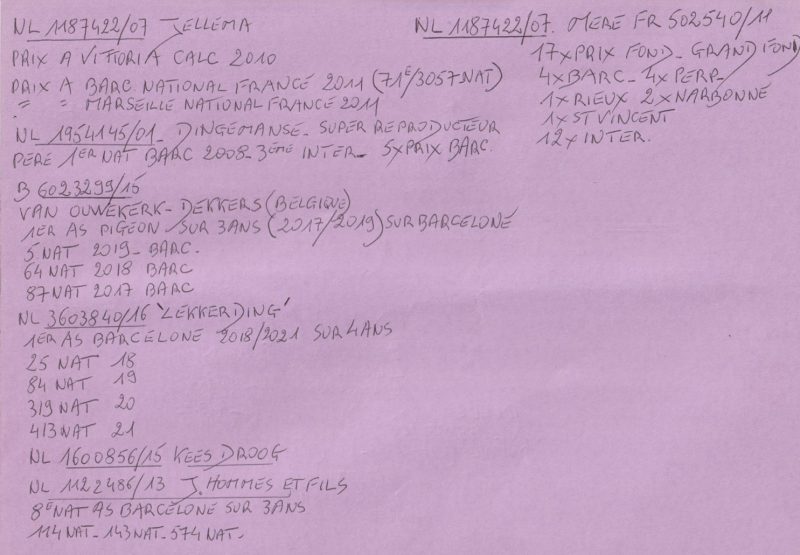 NL 1187422/07 JELLEMA
PRIX A VITTORIA CALC 2010
PRIX A BARC NATIONAL FRANCE 2011 (71E/3057 NAT)
" " MARSEILLE NATIONAL FRANCE 2011
NL 1954145/01 - DINGEMANSE - SUPER REPRODUCTEUR
PERE 1ER NAT BARC 2008 - 3ÈME INTER - 5XPRIX BARC.
B 6023299/15
VAN OUWEKERK - DEKKERS (BELGIQUE)
1ER AS PIGEON SUR 3ANS (2017/2019) SUR BARCELONE
5 NAT 2019 - BARC.
64 NAT 2018 BARC
87 NAT 2017 BARC
NL 3603840/16 'LEKKERDING'
1ER AS BARCELONE 2018/2021 SUR 4ANS
25 NAT 18
84 NAT 19
319 NAT 20
413 NAT 21
NL 1600856/15 KEES DROOG
NL 1122486/13 J. HOMMES ET FILS
8E NAT AS BARCELONE SUR 3ANS
114 NAT - 143 NAT - 574 NAT.
NL 1187422/07. MERE FR 502540/11
17XPRIX FOND - GRAND FOND
4XBARC - 4XPERP -
1XRIEUX 2XNARBONNE
1XST VINCENT
12XINTER.